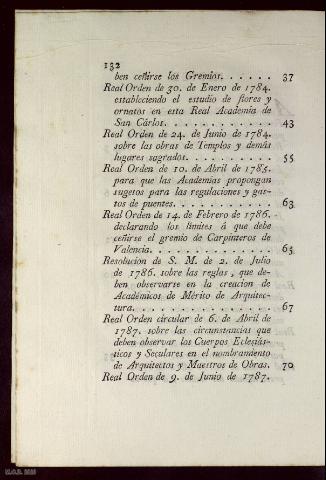 132
ben ceñirse los Gremios. . . . . . 37
Real Orden de 30. de Enero de 1784.
estableciendo el estudio de flores y
ornatos en esta Real Academia de
San Cárlos. . . . . . . . . . . . 43
Real Orden de 24. de Junio de 1784.
sobre las obras de Templos y demás
lugares sagrados. . . . . . . . . . 55
Real Orden de 10. de Abril de 1785.
para que las Academias propongan
sugetos para las regulaciones y gas-
tos de puentes. . . . . . . . . . . 63
Real Orden de 14. de Febrero de 1786.
declarando los limites á que debe
ceñirse el gremio de Carpinteros de
Valencia. . . . . . . . . . . . . . 65
Resolucion de S. M. de 2. de Julio
de 1786. sobre las reglas, que de-
ben observarse en la creacion de
Académicos de Mérito de Arquitec-
tura. . . . . . . . . . . . . . . . 67
Real Orden circular de 6. de Abril de
1787. sobre las circunstancias que
deben observar los Cuerpos Eclesiás-
ticos y Seculares en el nombramiento
de Arquitectos y Maestros de Obras. 70
Real Orden de 9. de Junio de 1787.